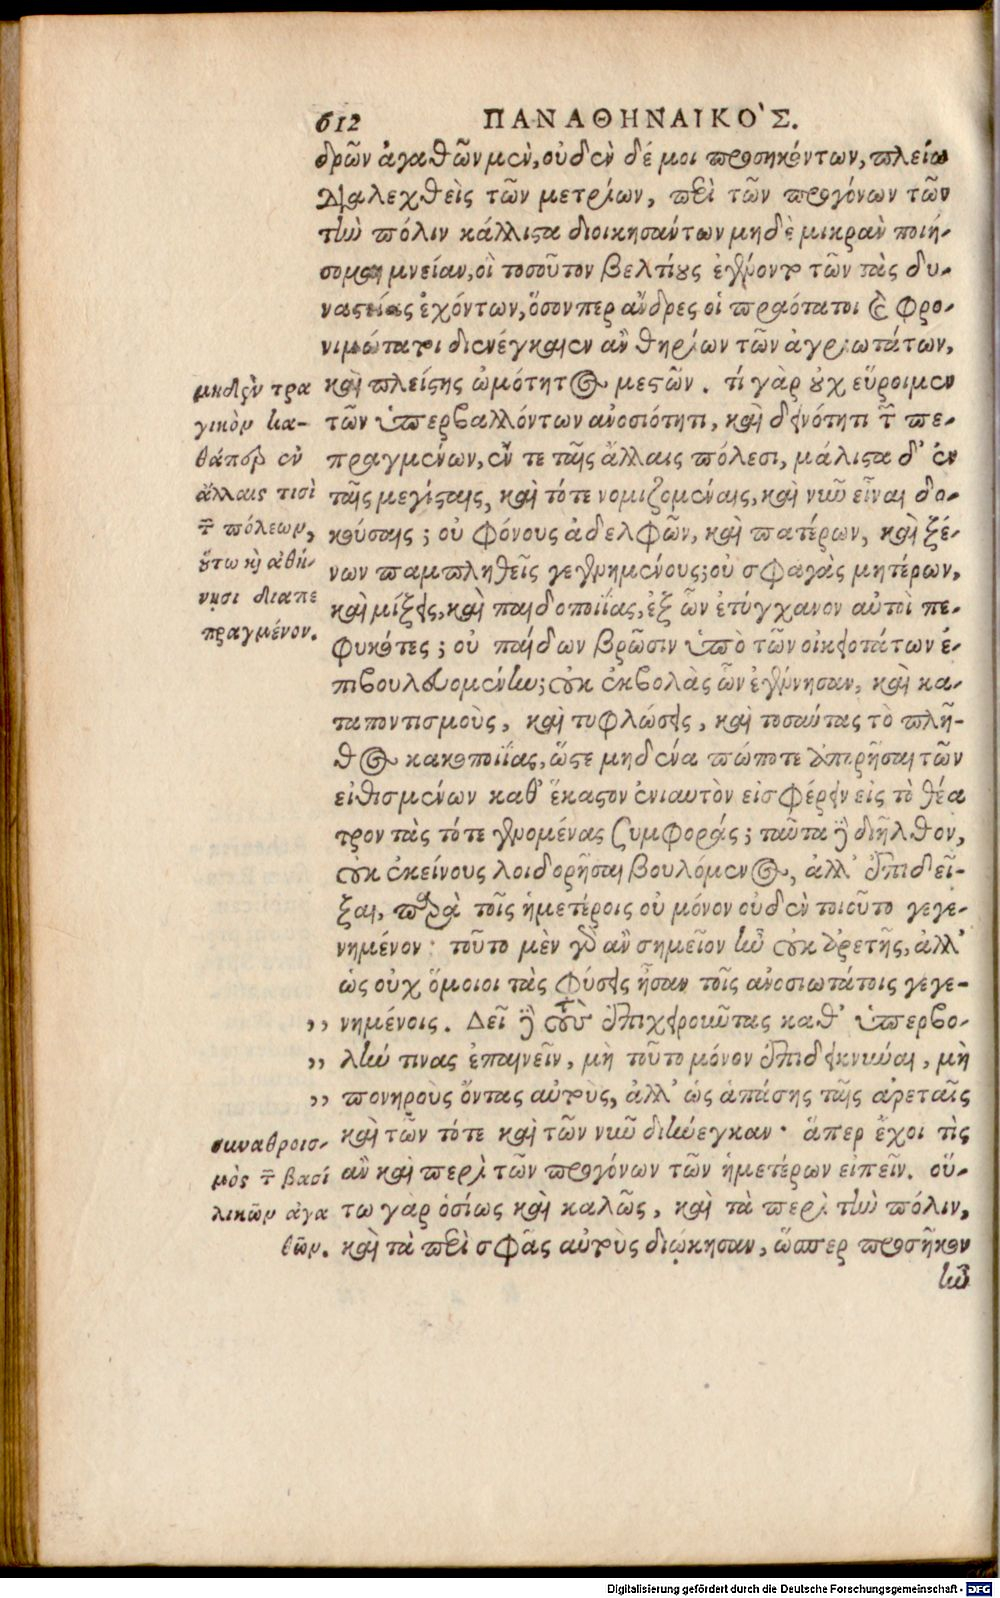 612 ΠΑΝΑΘΗΝΑΙΚΟ'Σ.
δρῶν ἀγαθῶν μὲν, οὐδὲν δέ μοι προσηκόντων, πλείω
διαλεχθεὶς τῶν μετρίων, περὶ τῶν προγόνων τῶν
τὴν πόλιν κάλλιστα διοικησάντων μηδὲ μικρὰν ποιή-
σομαι μνείαν, οἳ τοσοῦτον βελτίους ἐγένοντο τῶν τὰς δυ-
ναστείας ἐχόντων, ὅσον περ ἄνδρες οἱ πραότατοι καὶ φρο-
νιμώτατοι διενέγκαιεν ἂν θηρίων τῶν ἀγριωτάτων,
καὶ πλείστης ὠμότητος μεστῶν. τί γὰρ οὐχ εὕροιμεν
τῶν ὑπερβαλλόντων ἀνοσιότητι, καὶ δεινότητι τῶν πε-
πραγμένων, ἔν τε ταῖς ἄλλαις πόλεσι, μάλιστα δ' ἐν
ταῖς μεγίσταις, καὶ τότε νομιζομέναις, καὶ νῦν εἶναι δο-
κούσαις; οὐ φόνους ἀδελφῶν, καὶ πατέρων, καὶ ξέ-
νων παμπληθεῖς γεγενημένους; οὐ σφαγὰς μητέρων,
καὶ μίξεις, καὶ παιδοποιΐας, ἐξ ὧν ἐτύγχανον αὐτοὶ πε-
φυκότες; οὐ παίδων βρῶσιν ὑπὸ τῶν οἰκειοτάτων ἐ-
πιβουλευομένην; οὐκ ἐκβολὰς ὧν ἐγέννησαν, καὶ κα-
ταποντισμοὺς, καὶ τυφλώσεις, καὶ τοσαύτας τὸ πλῆ-
θος κακοποιΐας, ὥστε μηδένα πώποτε ἀπορῆσαι τῶν
εἰθισμένων καθ' ἕκαστον ἐνιαυτὸν εἰσφέρειν εἰς τὸ θέα
τρον τὰς τότε γενομένας συμφοράς; ταῦτα δὲ διῆλθον,
οὐκ ἐκείνους λοιδορῆσαι βουλόμενος, ἀλλ' ἐπιδεῖ-
ξαι, παρὰ τοῖς ἡμετέροις οὐ μόνον οὐδὲν τοιοῦτο γεγε-
νημένον· τοῦτο μὲν γὰρ ἂν σημεῖον ἦν οὐκ ἀρετῆς, ἀλλ'
ὡς οὐχ ὅμοιοι τὰς φύσεις ἦσαν τοῖς ἀνοσιωτάτοις γεγε-
,, νημένοις. Δεῖ δὲ τοὺς ἐπιχειροῦντας καθ' ὑπερβο-
,, λήν τινας ἐπαινεῖν, μὴ τοῦτο μόνον ἐπιδεικνύναι, μὴ
,, πονηροὺς ὄντας αὐτοὺς, ἀλλ' ὡς ἁπάσης ταῖς ἀρεταῖς
καὶ τῶν τότε καὶ τῶν νῦν διήνεγκαν· ἅπερ ἔχοι τὶς
ἂν καὶ περὶ τῶν προγόνων τῶν ἡμετέρων εἰπεῖν. οὕ-
τω γὰρ ὁσίως καὶ καλῶς, καὶ τὰ περὶ τὴν πόλιν,
καὶ τὰ περὶ σφᾶς αὐτοὺς διῴκησαν, ὥσπερ προσῆκον
ἦν
μηδὲν τρα
γικὸν κα-
θάπερ ἐν
ἄλλαις τισὶ
τῶν πόλεων,
οὕτω καὶ ἀθή-
νησι διαπε
πραγμένον.
συναθροισ-
μὸς τῶν βασι
λικῶν ἀγα
θῶν.
Digitalisierung gefördert durch die Deutsche Forschungsgemeinschaft - DFG